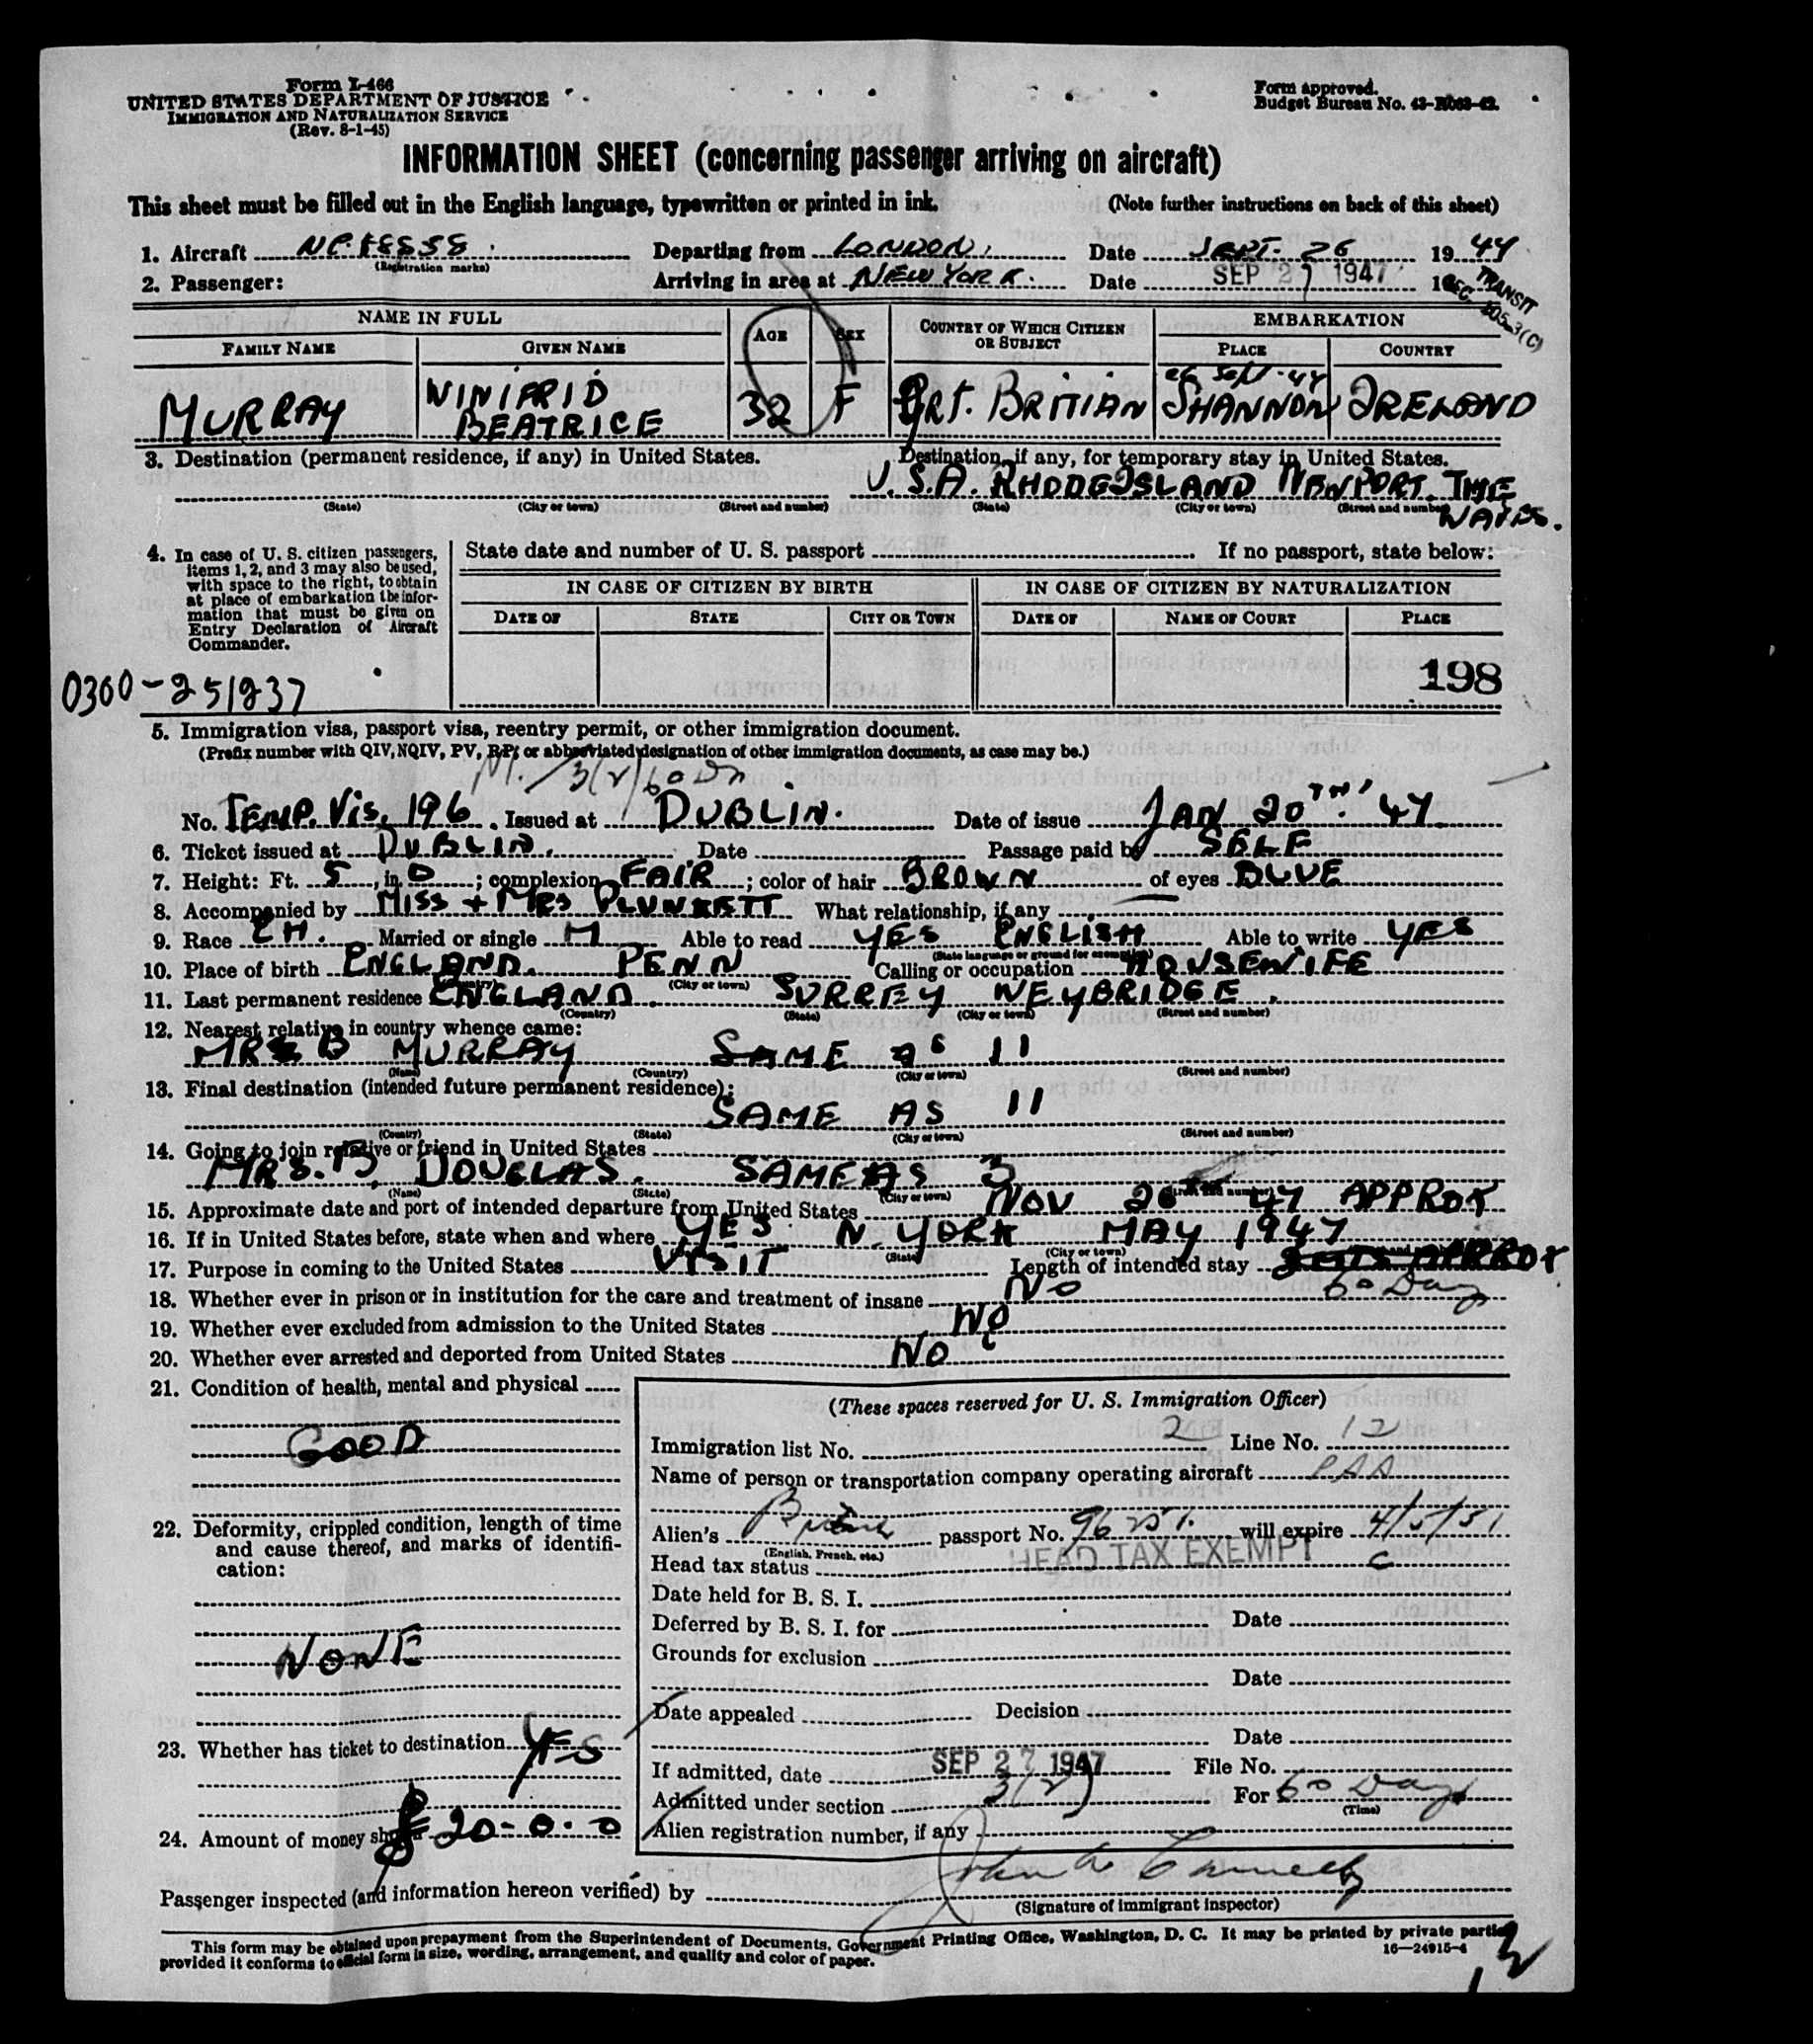 Form I-466
UNITED STATES DEPARTMENT OF JUSTICE
IMMIGRATION AND NATURALIZATION SERVICE
(Rev. 8-1-45)
Form approved.
Budget Bureau No. 43-R063-42.
INFORMATION SHEET (concerning passenger arriving on aircraft)
This sheet must be filled out in the English language, typewritten or printed in ink. (Note further instructions on back of this sheet)
1. Aircraft NC.18838. Departing from LONDON. Date SEPT. 26 19 47
(Registration marks)
2. Passenger: Arriving in area at NEW YORK. Date SEP 27 1947
TRANSIT
NAME IN FULL AGE SEX COUNTRY OF WHICH CITIZEN OR SUBJECT EMBARKATION
FAMILY NAME GIVEN NAME PLACE COUNTRY
26 Sept-47
MURRAY WINIFRID BEATRICE 32 F GRT. BRITIAN SHANNON IRELAND
3. Destination (permanent residence, if any) in United States. Destination, if any, for temporary stay in United States.
U.S.A. RHODE ISLAND NEWPORT. THE
WAVES.
(State) (City or town) (Street and number) (State) (City or town) (Street and number)
4. In case of U. S. citizen passengers, items 1, 2, and 3 may also be used, with space to the right, to obtain at place of embarkation the information that must be given on Entry Declaration of Aircraft Commander.
State date and number of U. S. passport If no passport, state below:
IN CASE OF CITIZEN BY BIRTH IN CASE OF CITIZEN BY NATURALIZATION
DATE OF STATE CITY OR TOWN DATE OF NAME OF COURT PLACE
198
0300-251237
5. Immigration visa, passport visa, reentry permit, or other immigration document.
(Prefix number with QIV, NQIV, PV, RP, or abbreviated designation of other immigration documents, as case may be.)
3(2) 60 Da
No. TEMP. VIS. 196. Issued at DUBLIN. Date of issue JAN 20TH. 47.
6. Ticket issued at DUBLIN. Date Passage paid by SELF
7. Height: Ft. 5, in. 0; complexion FAIR; color of hair BROWN of eyes BLUE
8. Accompanied by MISS + MRS PLUNKETT What relationship, if any
9. Race EH. Married or single M Able to read YES ENGLISH Able to write YES
(State language or ground for exemption)
10. Place of birth ENGLAND. PENN Calling or occupation HOUSEWIFE
(Country) (City or town)
11. Last permanent residence ENGLAND. SURREY WEYBRIDGE.
(Country) (State) (City or town) (Street and number)
12. Nearest relative in country whence came:
B MURRAY SAME AS 11
(Name) (Country) (City or town) (Street and number)
13. Final destination (intended future permanent residence):
SAME AS 11
(Country) (State) (City or town) (Street and number)
14. Going to join relative or friend in United States
MRS. B. DOUGLAS. SAME AS 3
(Name) (State) (City or town) (Street and number)
15. Approximate date and port of intended departure from United States NOV 26 47 APPROX
16. If in United States before, state when and where YES N. YORK MAY 1947
(State) (City or town)
17. Purpose in coming to the United States VISIT Length of intended stay APPROX
60 Days
18. Whether ever in prison or in institution for the care and treatment of insane NO
19. Whether ever excluded from admission to the United States NO
20. Whether ever arrested and deported from United States NO
21. Condition of health, mental and physical
GOOD
22. Deformity, crippled condition, length of time and cause thereof, and marks of identification:
NONE
23. Whether has ticket to destination YES
24. Amount of money shown £ 20-0-0
(These spaces reserved for U. S. Immigration Officer)
Immigration list No. 2 Line No. 12
Name of person or transportation company operating aircraft PAA
Alien's British passport No. 96251. will expire 4/5/51
(English, French, etc.)
Head tax status HEAD TAX EXEMPT C
Date held for B. S. I.
Deferred by B. S. I. for Date
Grounds for exclusion
Date
Date appealed Decision
Date
If admitted, date SEP 27 1947 File No.
Admitted under section 3(2) For 60 Days
(Time)
Alien registration number, if any
Passenger inspected (and information hereon verified) by
(Signature of immigrant inspector)
This form may be obtained upon prepayment from the Superintendent of Documents, Government Printing Office, Washington, D. C. It may be printed by private parties
provided it conforms to official form in size, wording, arrangement, and quality and color of paper.
16—24915-4